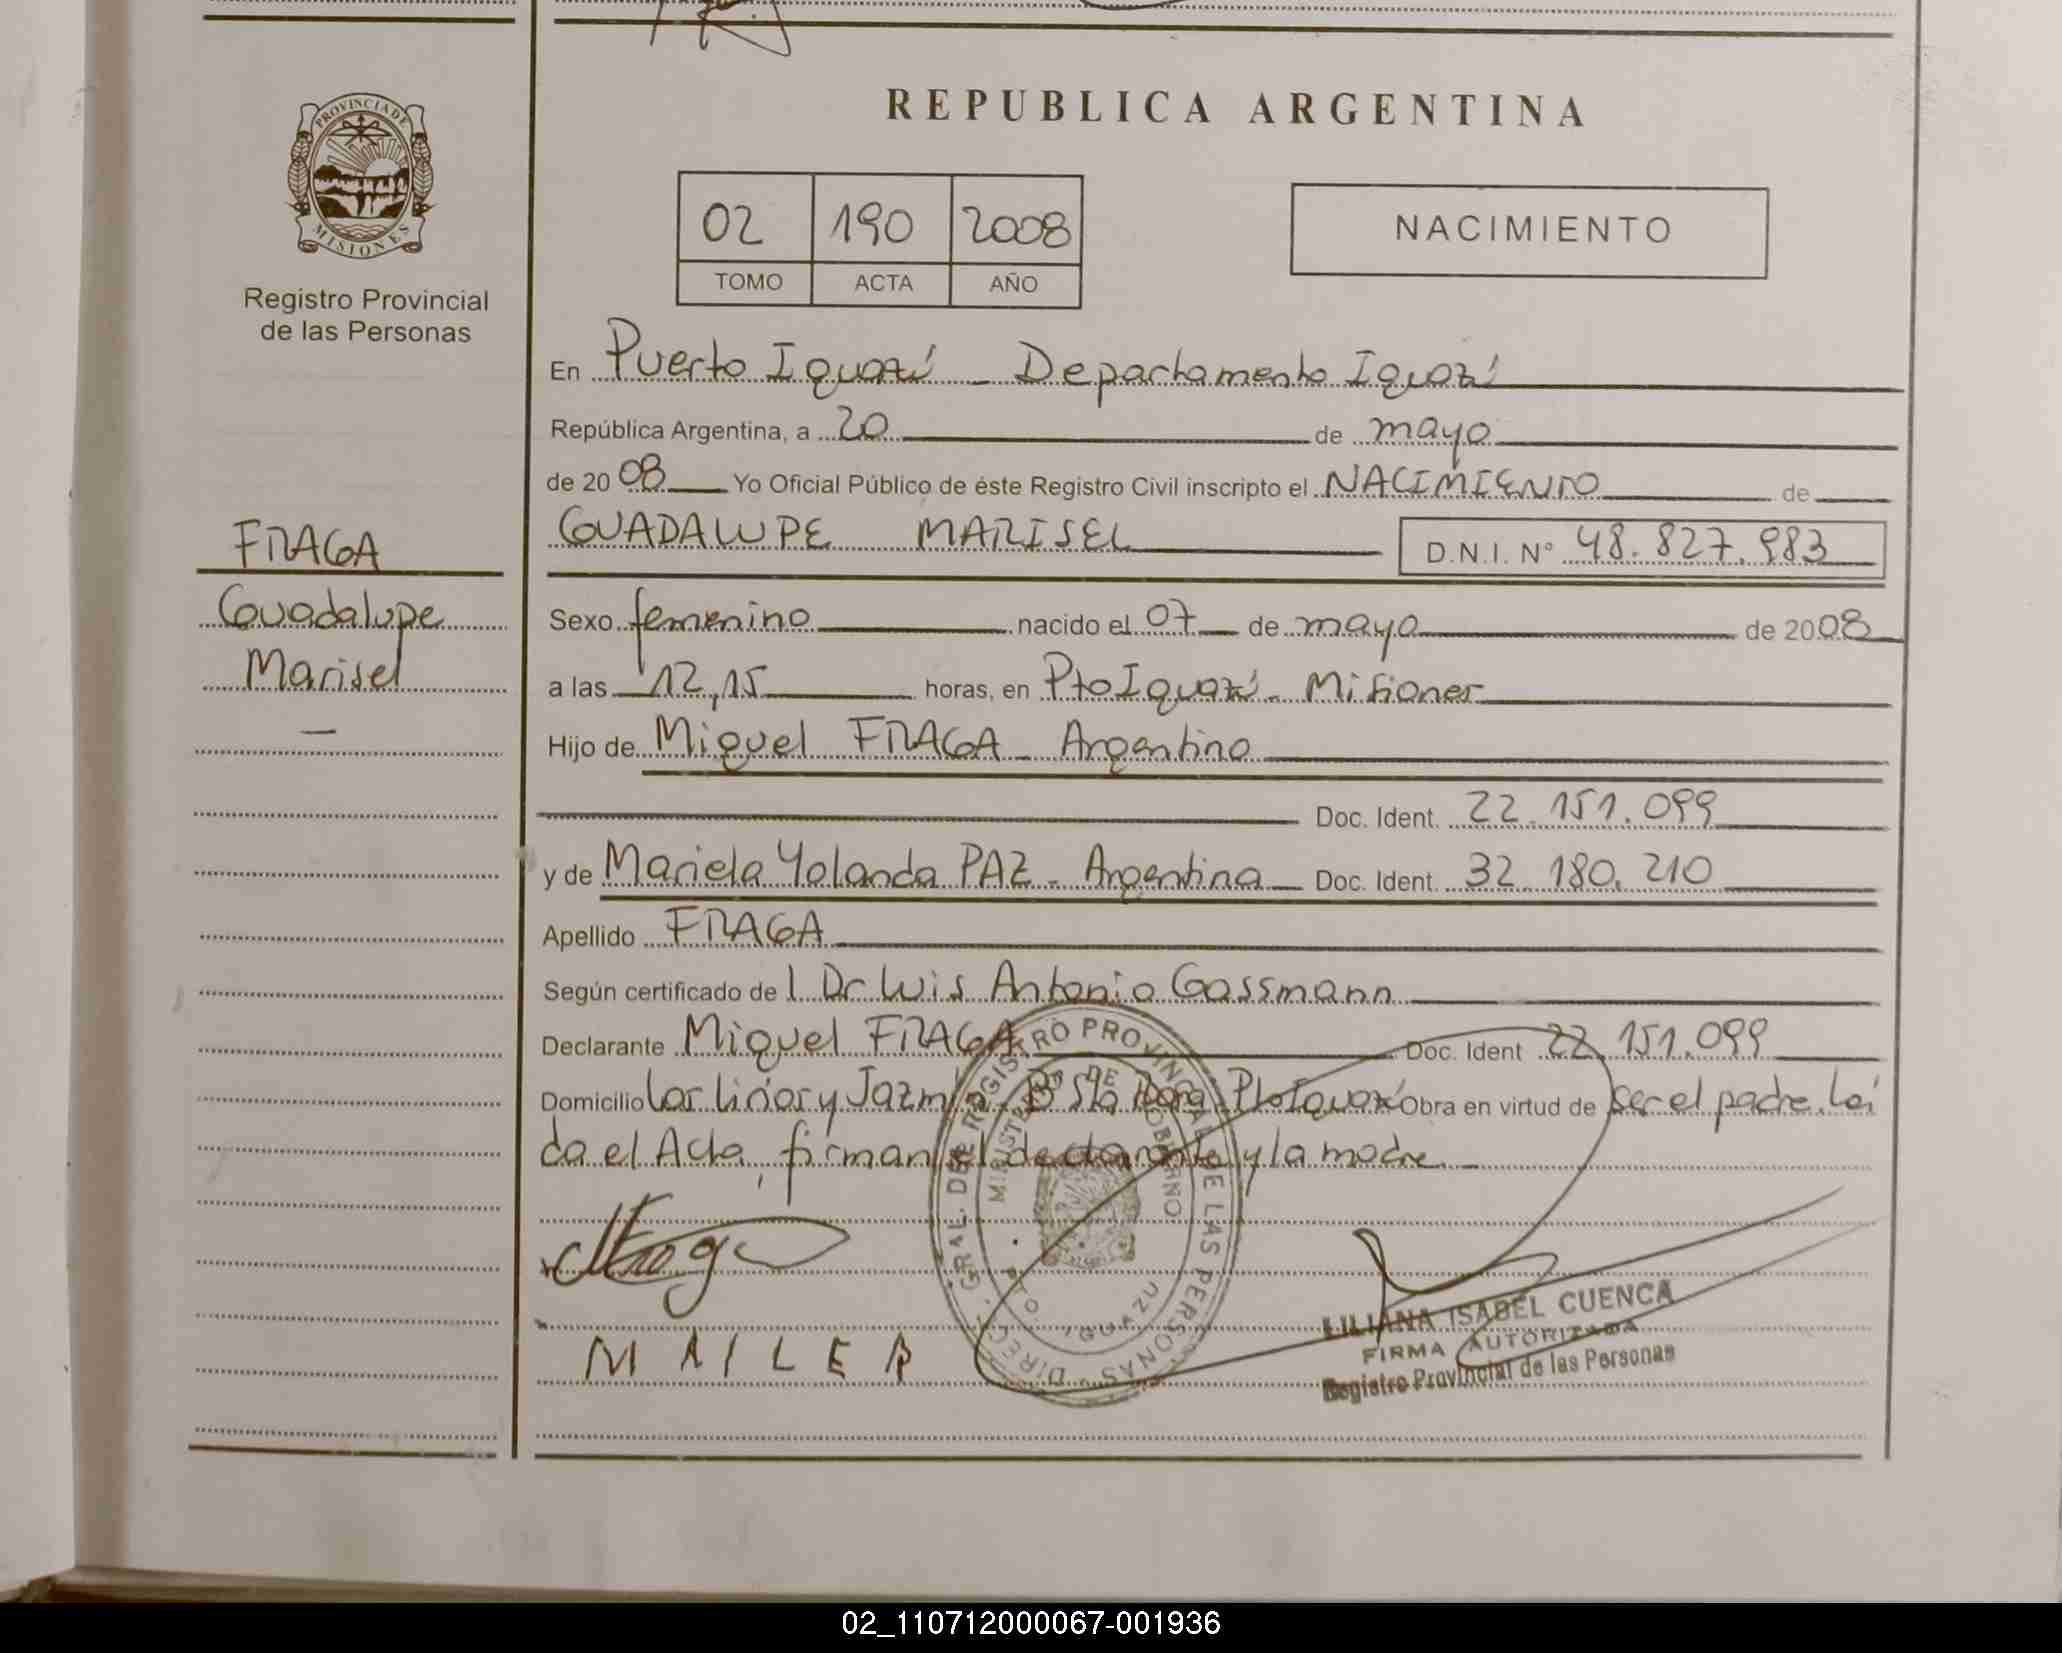 PROVINCIA DE
MISIONES
Registro Provincial
de las Personas
FRAGA
Guadalupe
Marisel
—
REPUBLICA ARGENTINA
02 190 2008
TOMO ACTA AÑO
NACIMIENTO
En Puerto Iguazú - Departamento Iguazú
República Argentina, a 20 de mayo
de 2008 Yo Oficial Público de éste Registro Civil inscripto el NACIMIENTO de
GUADALUPE MARISEL D.N.I. Nº 48.827.983
Sexo femenino nacido el 07 de mayo de 2008
a las 12,15 horas, en Pto Iguazú - Misiones
Hijo de Miguel FRAGA - Argentino
Doc. Ident. 22.151.099
y de Mariela Yolanda PAZ - Argentina Doc. Ident. 32.180.210
Apellido FRAGA
Según certificado del Dr Luis Antonio Gassmann
Declarante Miguel FRAGA Doc. Ident 22.151.099
Domicilio Los Lirios y Jazmín Bº Sta Rosa Pto Iguazú Obra en virtud de ser el padre. Leí
da el Acta, firman el declarante y la madre -
DIREC. GRAL. DEL REGISTRO PROVINCIAL DE LAS PERSONAS
MINISTERIO DE GOBIERNO
PTO. IGUAZU
LILIANA ISABEL CUENCA
FIRMA AUTORIZADA
Registro Provincial de las Personas
02_110712000067-001936